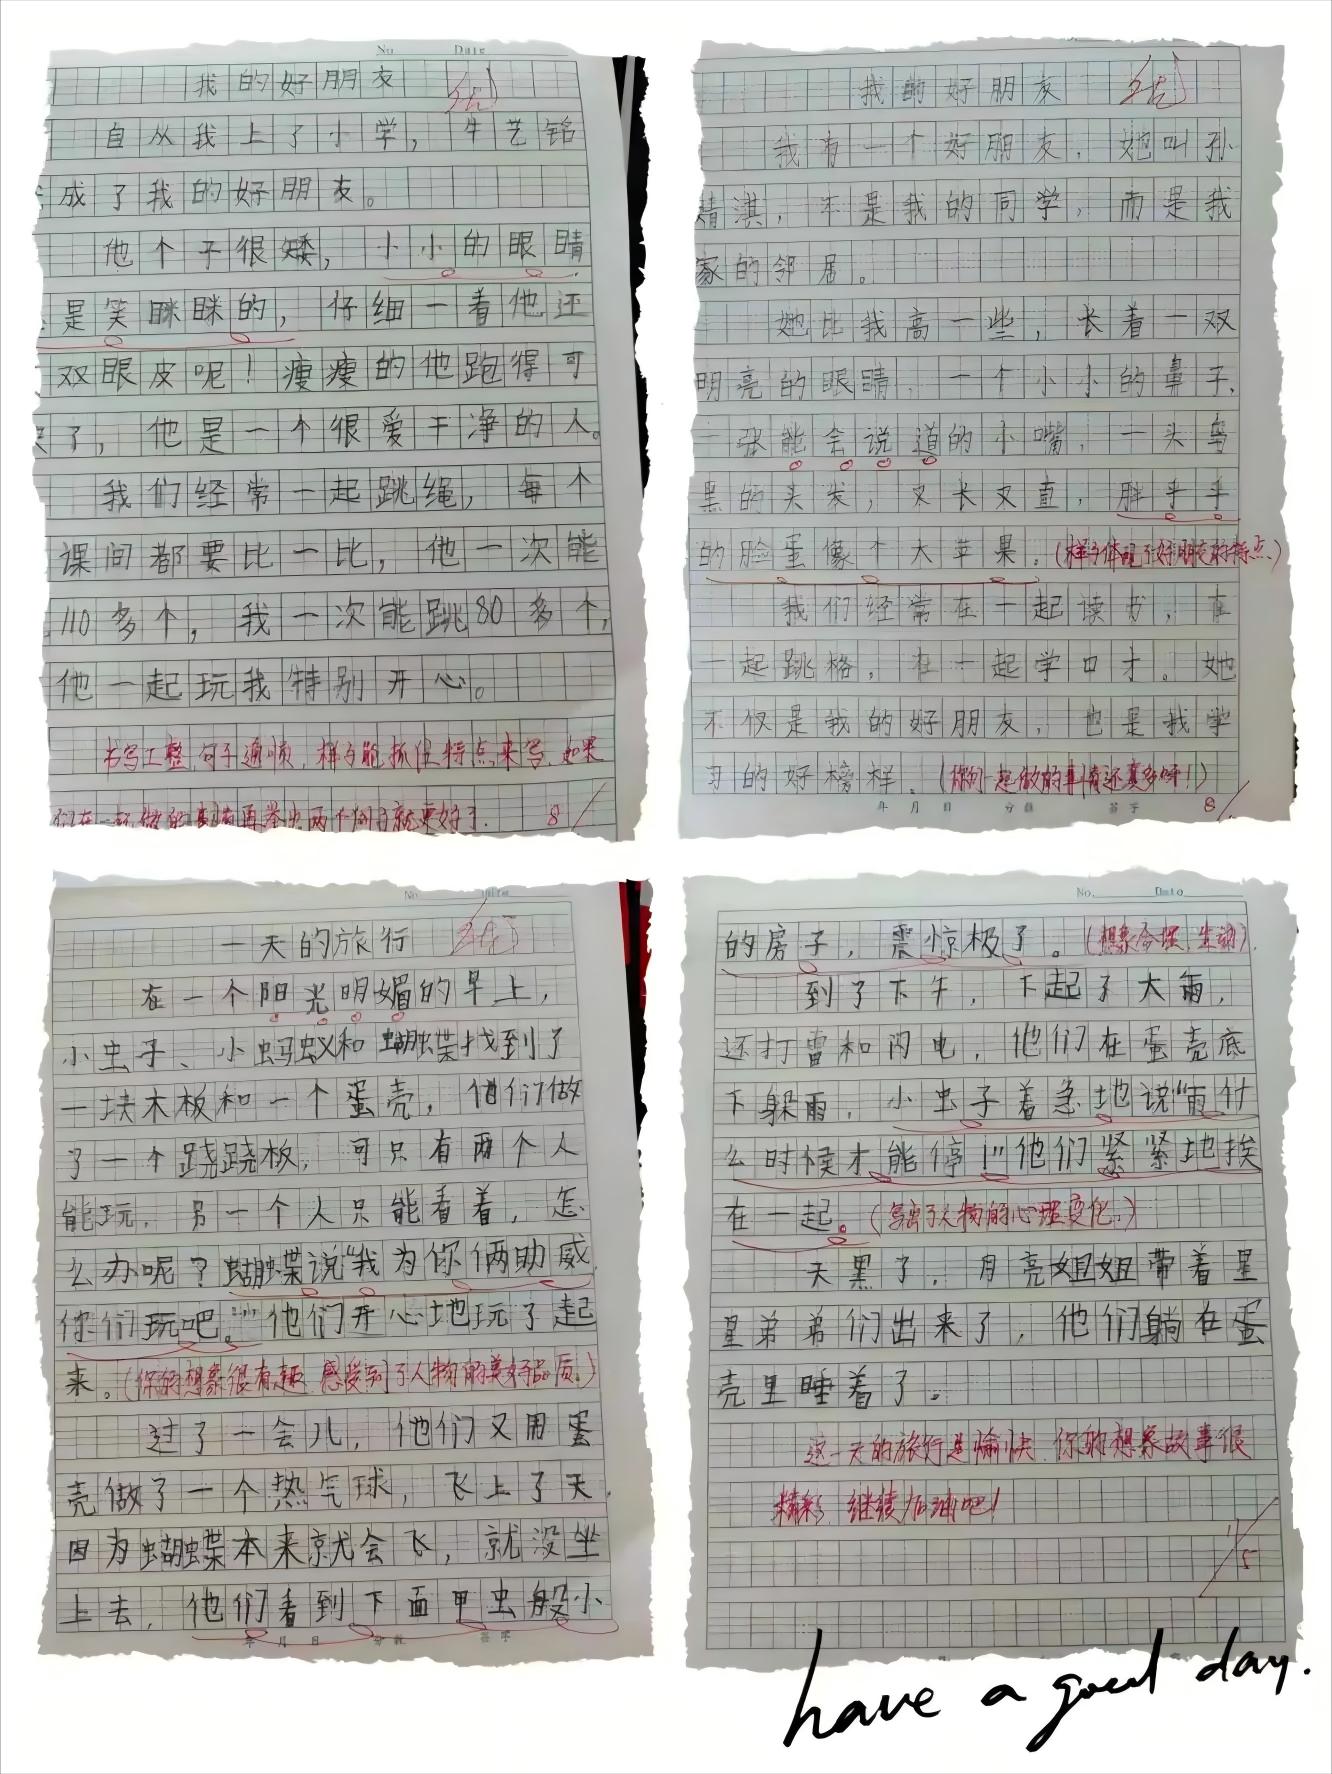 No. Date
我的好朋友 优
自从我上了小学，牛艺铭
成了我的好朋友。
他个子很矮，小小的眼睛
是笑眯眯的，仔细一看他还
双眼皮呢！瘦瘦的他跑得可
了，他是一个很爱干净的人。
我们经常一起跳绳，每个
课间都要比一比，他一次能
110多个，我一次能跳80多个，
他一起玩我特别开心。
书写工整，句子通顺，样子能抓住特点来写，如果
们在一起做的事情再举出两个例子就更好了。 8/
我的好朋友 优
我有一个好朋友，她叫孙
婧淇，不是我的同学，而是我
家的邻居。
她比我高一些，长着一双
明亮的眼睛，一个小小的鼻子，
一张能会说道的小嘴，一头乌
黑的头发，又长又直，胖乎乎
的脸蛋像个大苹果。（样子体现了好朋友的特点）
我们经常在一起读书，在
一起跳格，在一起学口才。她
不仅是我的好朋友，也是我学
习的好榜样。（你们一起做的事情还真多呀！）
年 月 日 分数 签字 8/
No. Date
一天的旅行 优
在一个阳光明媚的早上，
小虫子、小蚂蚁和蝴蝶找到了
一块木板和一个蛋壳，他们做
了一个跷跷板，可只有两个人
能玩，另一个人只能看着，怎
么办呢？蝴蝶说“我为你俩助威，
你们玩吧。”他们开心地玩了起
来。（你的想象很有趣，感受到了人物的美好品质。）
过了一会儿，他们又用蛋
壳做了一个热气球，飞上了天，
因为蝴蝶本来就会飞，就没坐
上去，他们看到下面甲虫般小
年 月 日 分数 签字
No. Date
的房子，震惊极了。（想象合理、生动）
到了下午，下起了大雨，
还打雷和闪电，他们在蛋壳底
下躲雨，小虫子着急地说“雨什
么时候才能停！”他们紧紧地挨
在一起。（写出了人物的心理变化。）
天黑了，月亮姐姐带着星
星弟弟们出来了，他们躺在蛋
壳里睡着了。
这一天的旅行是愉快，你的想象故事很
精彩，继续加油吧！
11/5
have a good day.